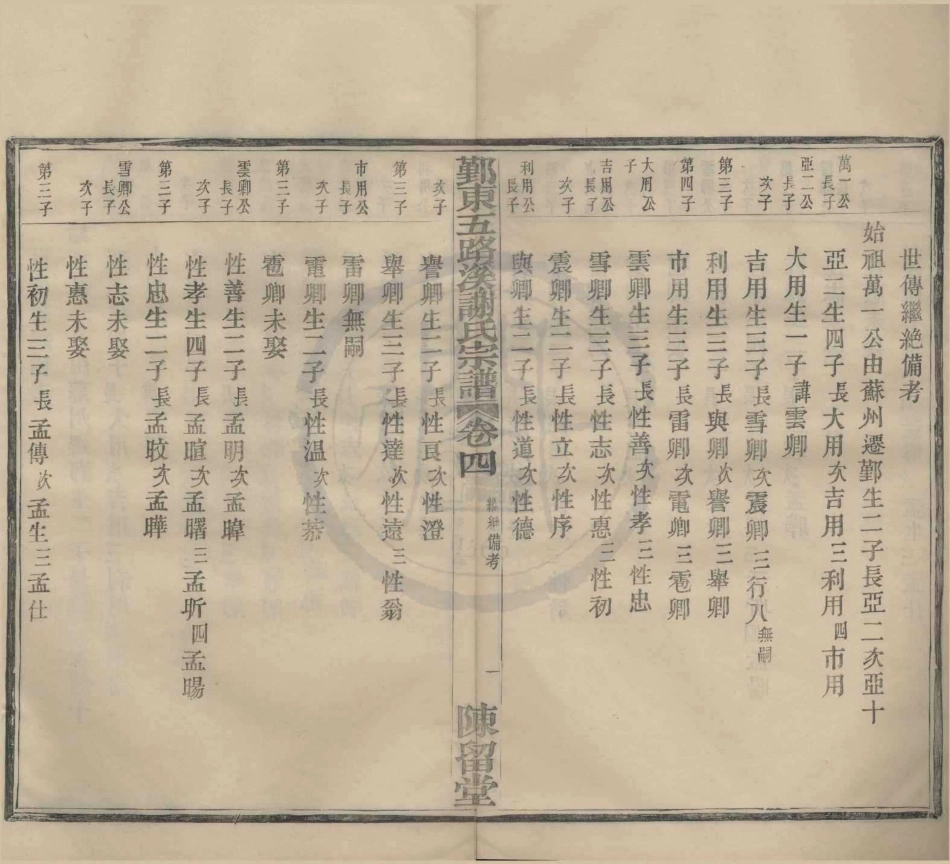 世傳繼絶備考
始祖萬一公由蘇州遷鄞生二子長亞二次亞十
萬一公長子
亞二生四子長大用次吉用三利用四市用
亞二公長子
大用生一子諱雲卿
次子
吉用生三子長雪卿次震卿三行八無嗣
第三子
利用生三子長與卿次譽卿三舉卿
第四子
市用生三子長雷卿次電卿三雹卿
大用公子
雲卿生三子長性善次性孝三性忠
吉用公長子
雪卿生三子長性志次性惠三性初
次子
震卿生二子長性立次性序
利用公長子
與卿生二子長性道次性德
鄞東五路溪謝氏宗譜
卷四
備考
一
陳留堂
次子
譽卿生二子長性良次性澄
第三子
舉卿生三子長性達次性遠三性翁
市用公長子
雷卿無嗣
次子
電卿生二子長性温次性恭
第三子
雹卿未娶
雲卿公長子
性善生二子長孟明次孟暐
次子
性孝生四子長孟暄次孟曙三孟昕四孟暘
第三子
性忠生二子長孟旼次孟曄
雪卿公長子
性志未娶
次子
性惠未娶
第三子
性初生三子長孟傳次孟生三孟仕